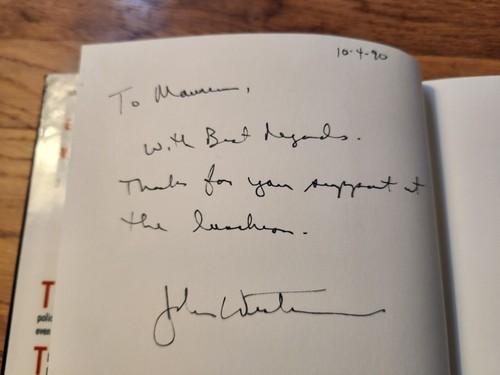 10-4-90
To Maureen,
With Best Regards.
Thanks for your support at
the luncheon.
John
T
polic
even
T